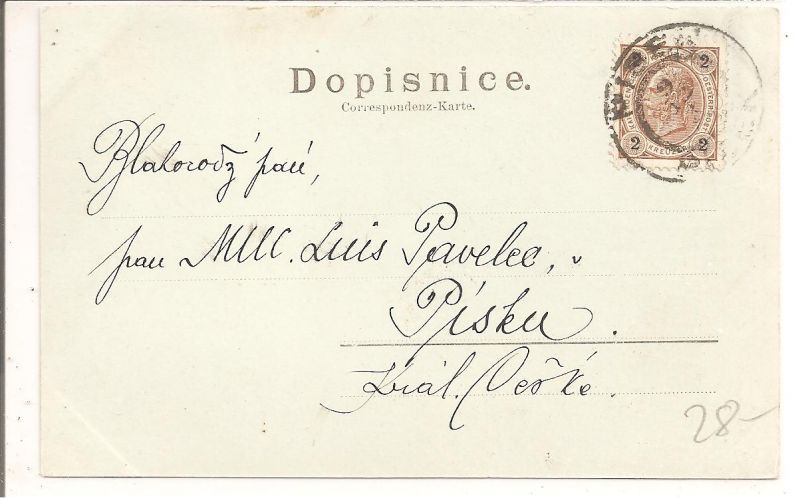 Dopisnice.
Correspondenz-Karte.
2
2
2
KREUZER
Blahorodý paní,
pan MUC. Luis Pavelec, v
Písku.
Král. České.
28-